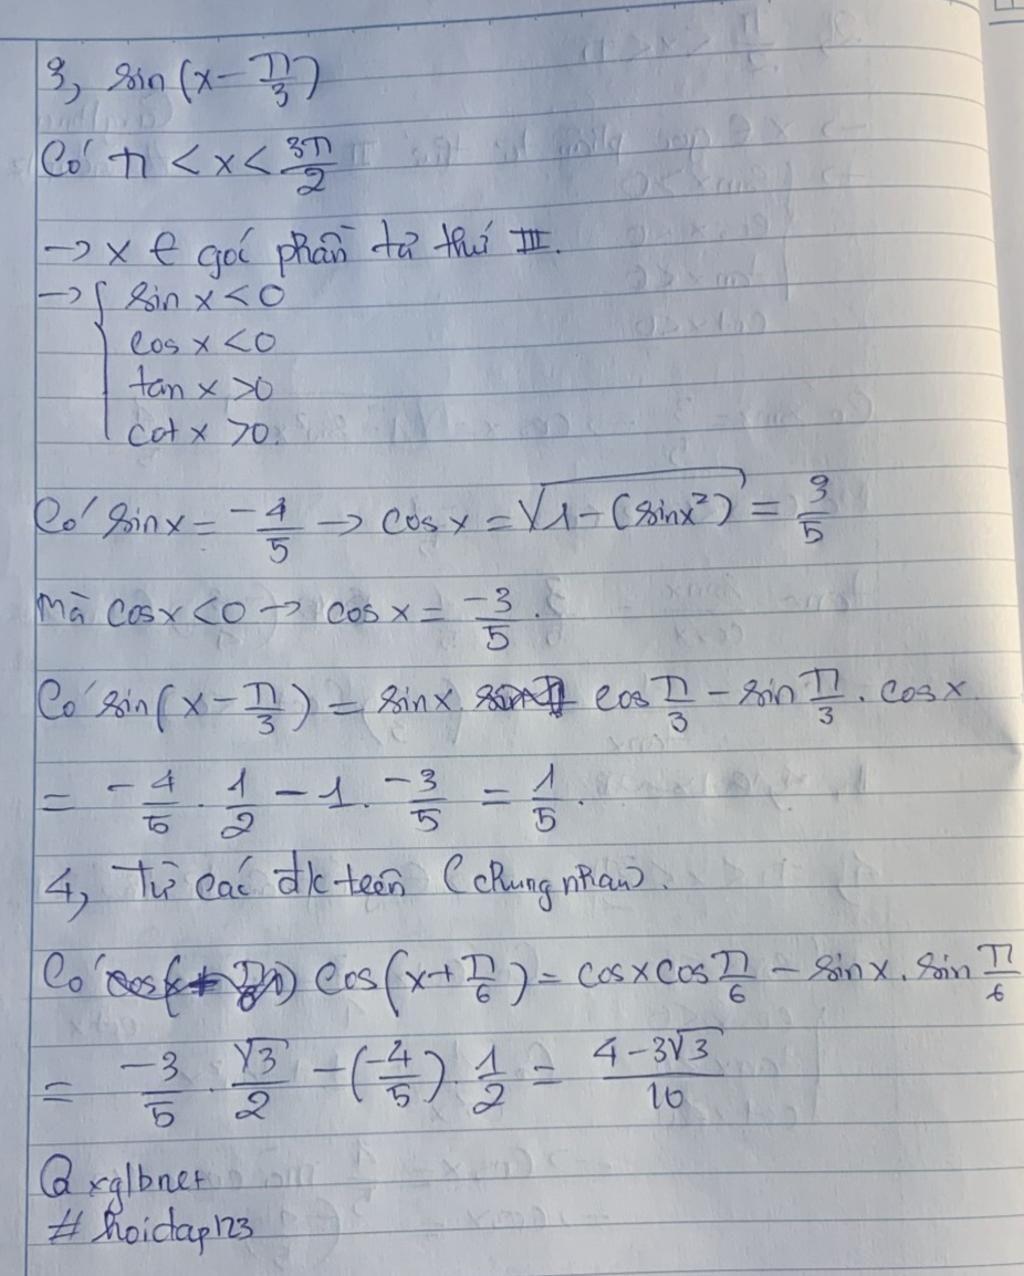 3, sin (x - π/3)
Có π < x < 3π/2
→ x ∈ góc phần tử thứ III.
→ { sin x < 0
cos x < 0
tan x > 0
cot x > 0.
Có sin x = -4/5 → cos x = √(1 - (sin x²)) = 3/5
Mà cos x < 0 → cos x = -3/5.
Có sin (x - π/3) = sin x cos π/3 - sin π/3 . cos x
= -4/5 . 1/2 - 1 . -3/5 = 1/5.
4, Từ các đk trên (chung nhau).
Có cos (x + π/6) = cos x cos π/6 - sin x . sin π/6
= -3/5 . √3/2 - (-4/5) . 1/2 = (4 - 3√3)/10
@xglbner
#hoidap123